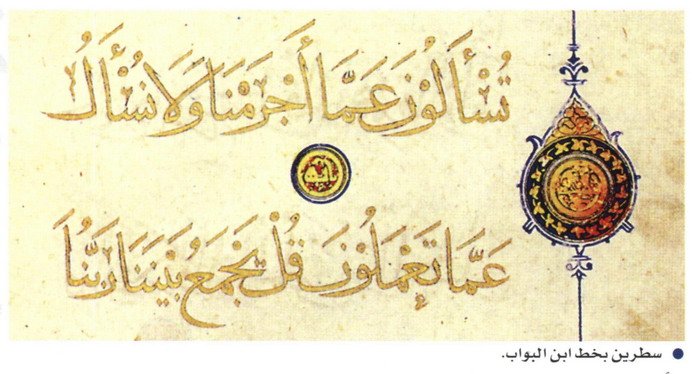 تُسْأَلُونَ عَمَّا أَجْرَمْنَا وَلَا نُسْأَلُ
عَمَّا تَعْمَلُونَ قُلْ يَجْمَعُ بَيْنَنَا رَبُّنَا
سطرين بخط ابن البواب.